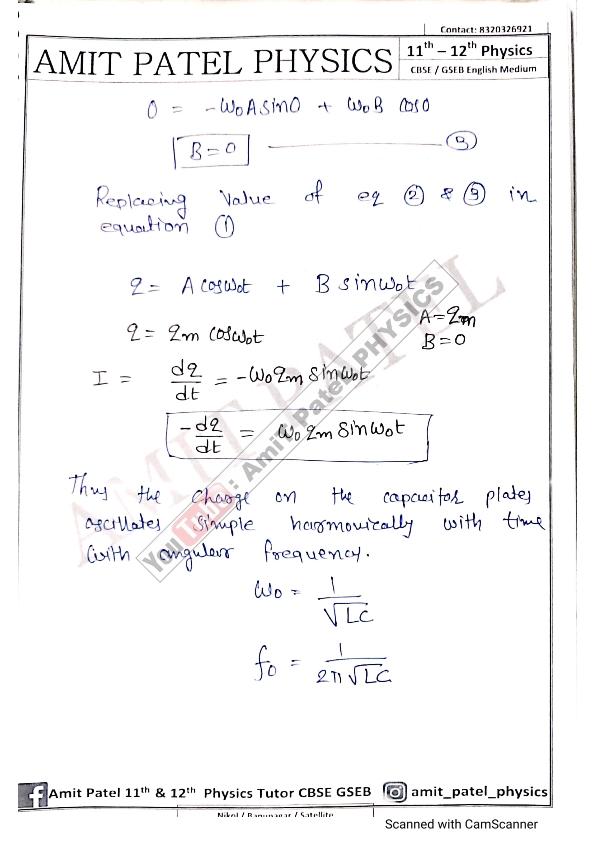 Contact: 8320326921
AMIT PATEL PHYSICS
11th – 12th Physics
CBSE / GSEB English Medium
0 = -ω₀A sin0 + ω₀B cos0
B = 0 ③
Replacing Value of eq ② & ③ in
equation ①
q = A cosω₀t + B sinω₀t
q = qm cosω₀t
A = qm
B = 0
I = dq/dt = -ω₀qm sinω₀t
-dq/dt = ω₀ qm sinω₀t
Thus the charge on the capacitor plates
oscillates simple harmonically with time
with angular frequency.
ω₀ = 1/√LC
f₀ = 1/2π√LC
AMIT PATEL
You Tube : Amit Patel PHYSICS
Amit Patel 11th & 12th Physics Tutor CBSE GSEB
amit_patel_physics
Nikol / Bapunagar / Satellite
Scanned with CamScanner